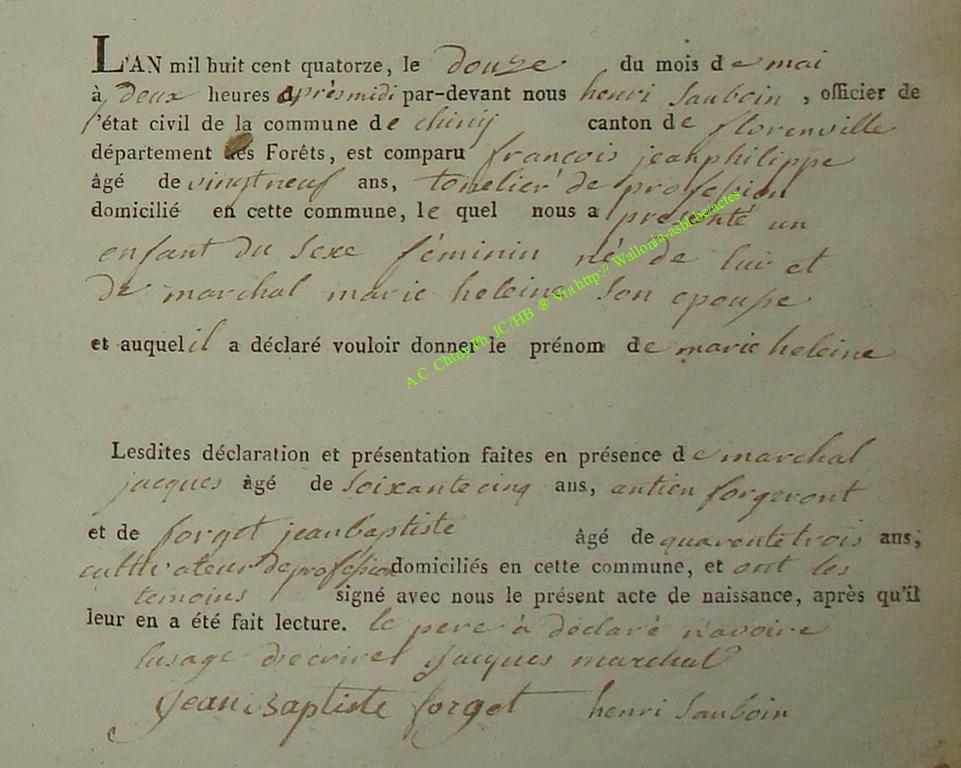 L'AN mil huit cent quatorze, le douze du mois de mai
à deux heures après midi par-devant nous henri Sauboin, officier de
l'état civil de la commune de chiny canton de florenville
département des Forêts, est comparu françois jeanphilippe
âgé de vingt neuf ans, tonelier de profession
domicilié en cette commune, le quel nous a présenté un
enfant du sexe féminin né de lui et
de marchal marie heleine son epouse
et auquel il a déclaré vouloir donner le prénom de marie heleine
A.C. Chiny Ph. JC /HB ® Via http:// Wallonia-asbl.be/actes
Lesdites déclaration et présentation faites en présence de marchal
jacques âgé de soixante cinq ans, antien forgeront
et de forget jean baptiste âgé de quarente trois ans,
cultivateur de profession domiciliés en cette commune, et ont les
temoins signé avec nous le présent acte de naissance, après qu'il
leur en a été fait lecture. le pere à déclaré n'avoire
lusage decrire jacques marchal
jean Baptiste forget henri Sauboin